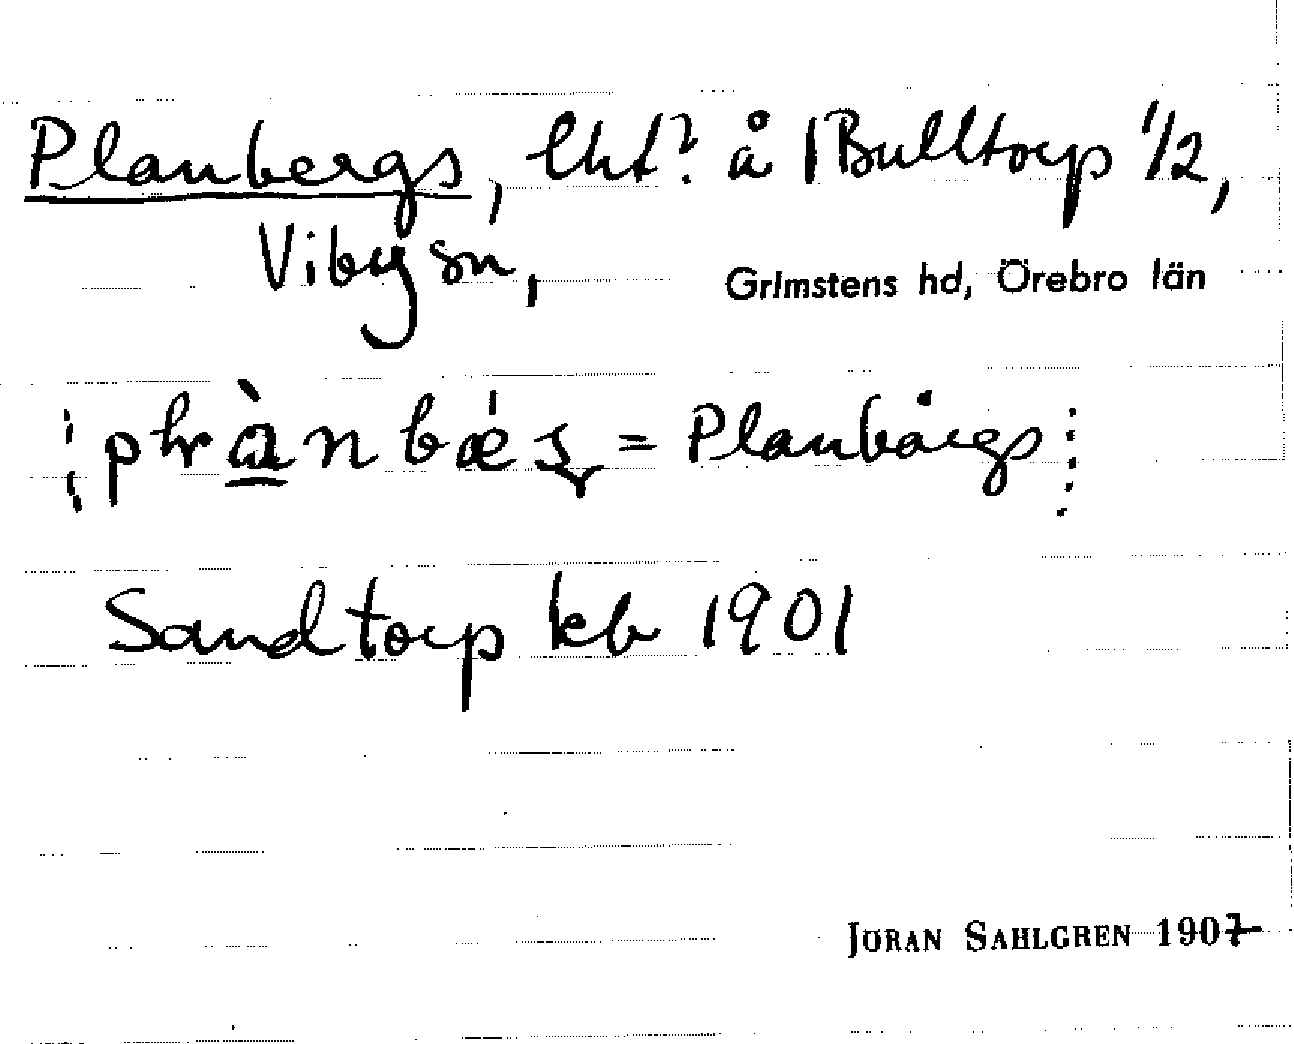 Planbergs, lht? å Bulltorp 1/2,
Viby sn,
Grimstens hd, Örebro län
= Planbärgs
Sandtorp kb 1901
JÖRAN SAHLGREN 1907